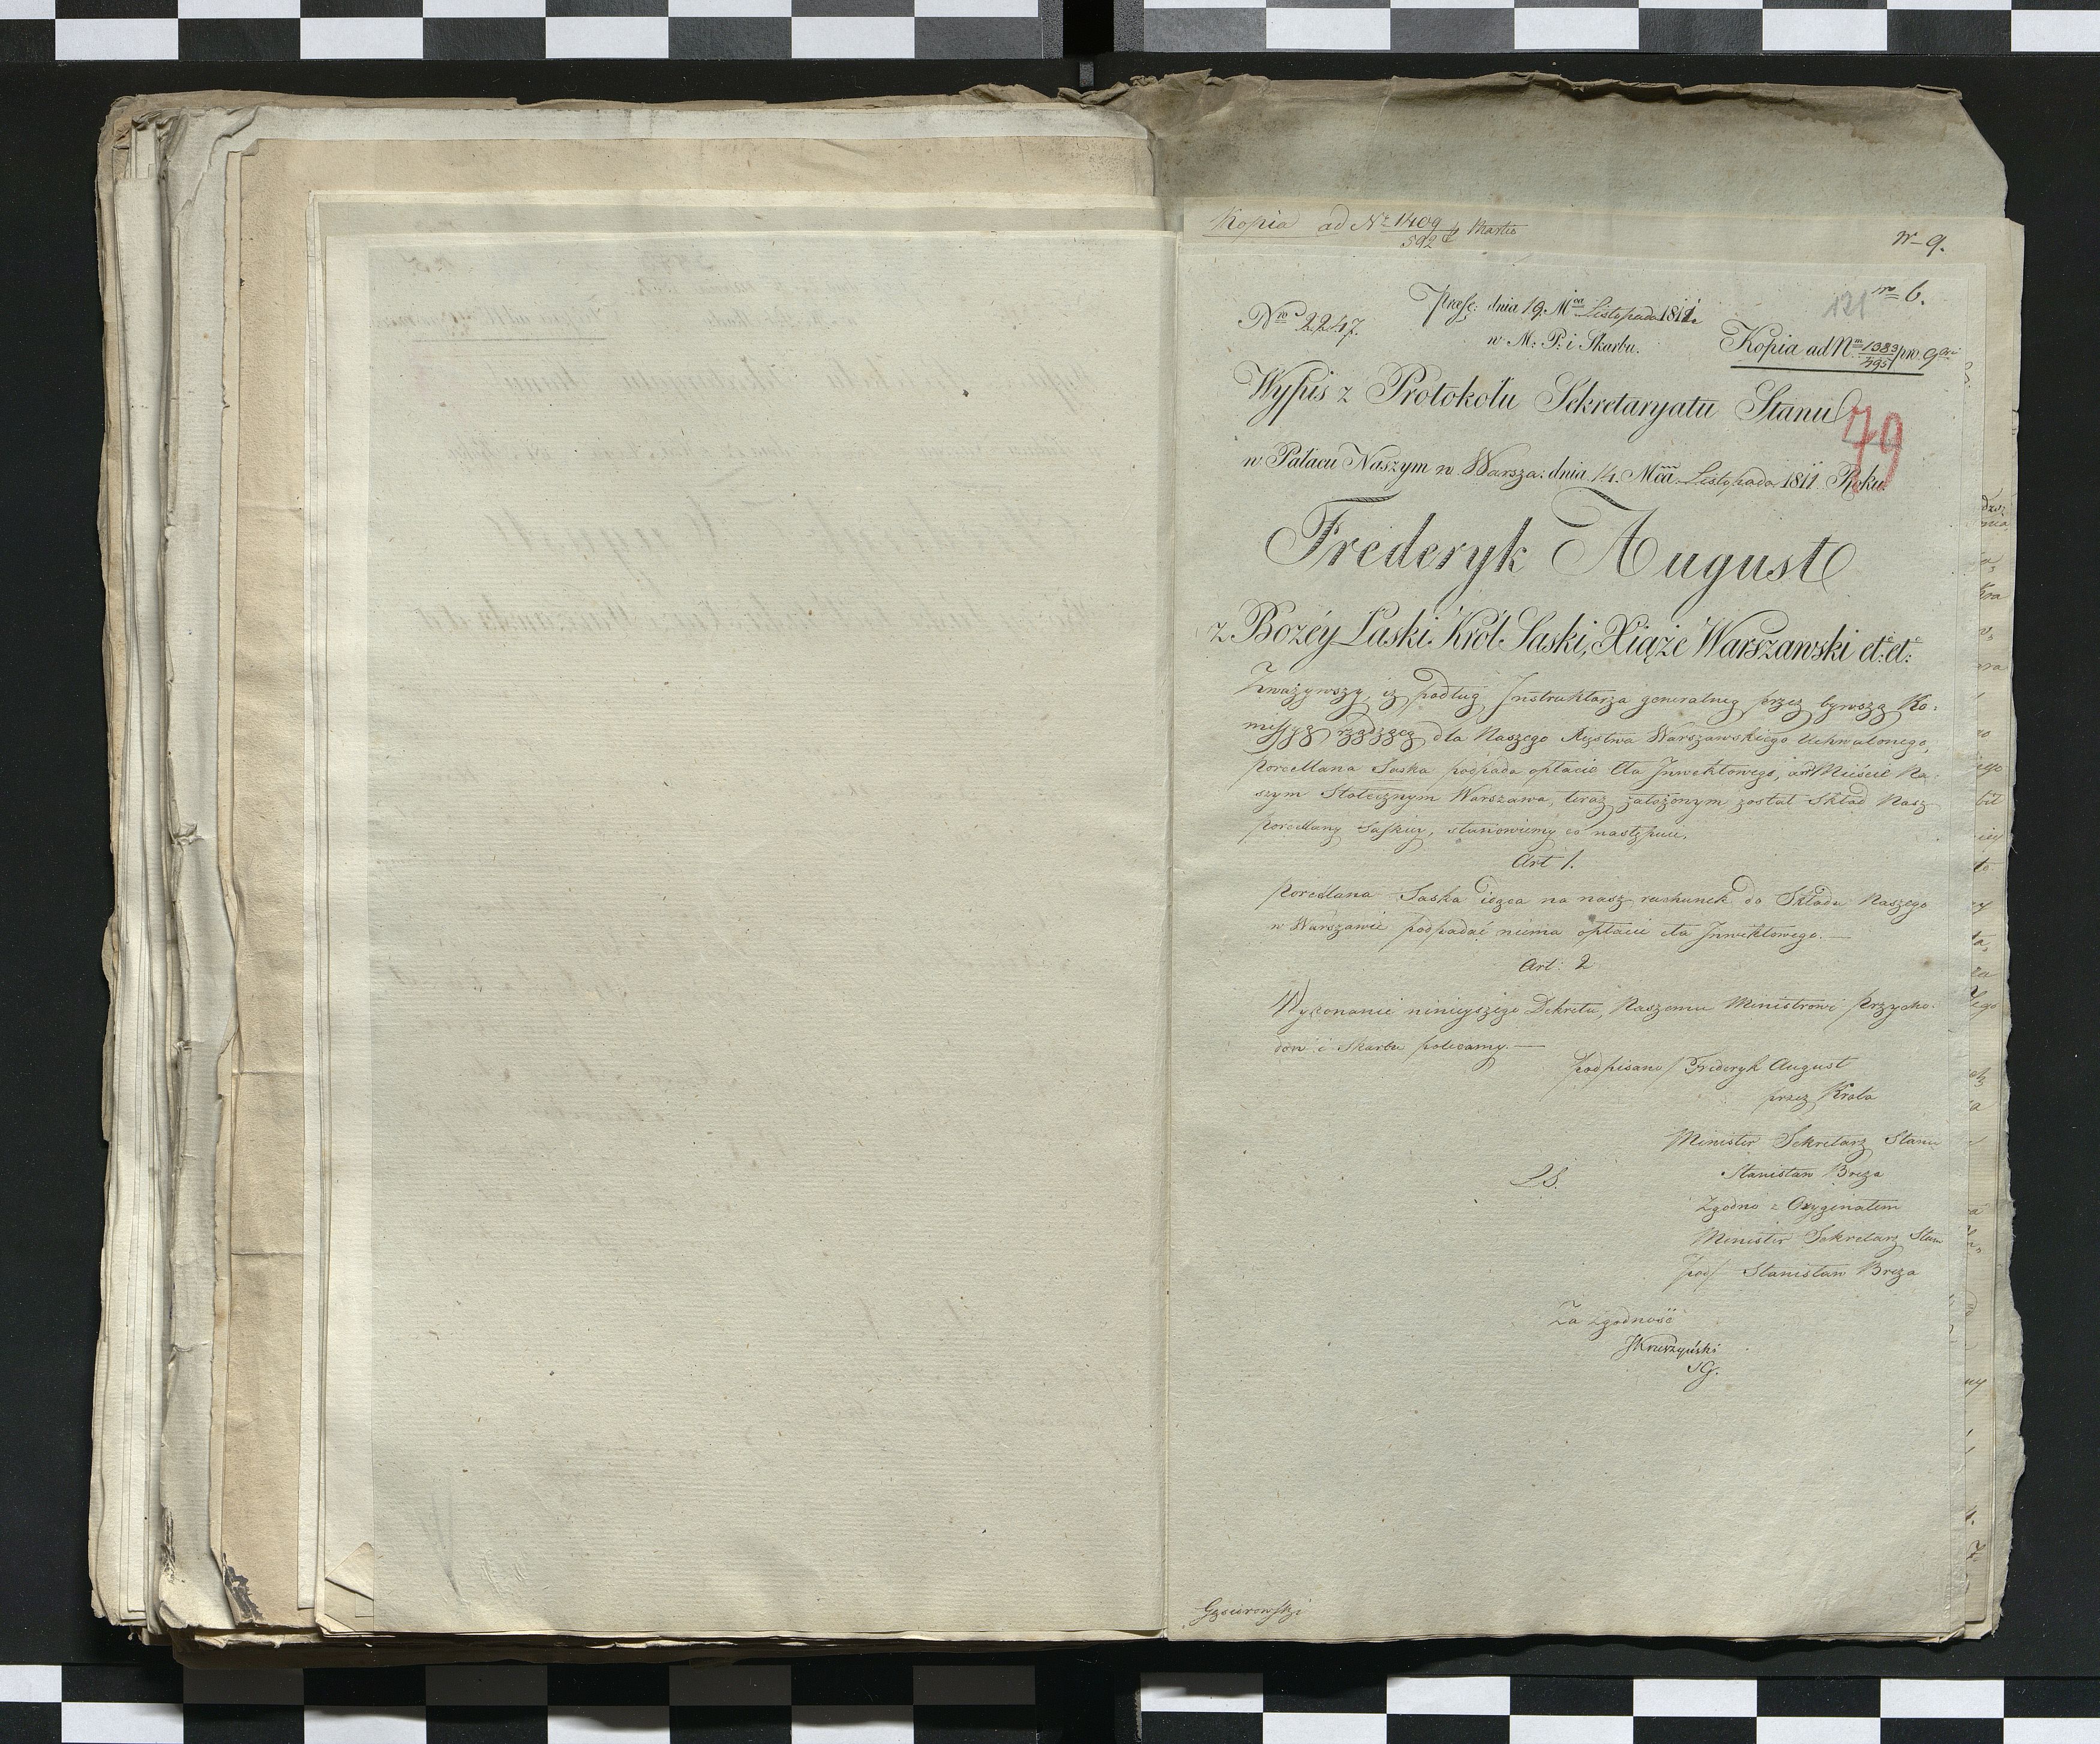 Kopia ad Nr 1409/592 Martio
Nr 9.
nro 6.
121
Nro 2247.
Præs: dnia 19. Mca Listopada 1811.
w M: P: i Skarbu.
Kopia ad Nm 1383/595 pro 9bri
Wypis z Protokołu Sekretaryatu Stanu
79
w Pałacu Naszym w Warsza: dnia 14. Mca Listopada 1811 Roku.
Frederyk August
z Bożéy Łaski Król Saski, Xiąże Warszawski et: et:
Zważywszy, iż podług Instruktarza generalneg przez bywszą Ko:
missyą rządzącą dla Naszego Xięstwa Warszawskiego uchwalonego,
porcellana Saska podpada opłacie Cła Inwektowego, a w Mieście Na:
szym Stołecznym Warszawa, teraz założonym został Skład Nasz
porcellany Saskiey, stanowiemy co następuie,
Art 1.
Porcelana Saska idąca na nasz rachunek do Składu Naszego
w Warszawie podpadać niema opłacie cła Inwektowego. —
Art: 2
Wykonanie ninieyszego Dekretu, Naszemu Ministrowi Przycho:
dów i Skarbu polecamy. —
podpisano/ Frideryk August
przez Króla
Minister Sekretarz Stanu
LS.
Stanisław Breza
Zgodno z Oryginałem
Minister Sekretarz Stanu
pod/ Stanisław Breza
Za zgodność
JKruszyński
SG.
Gąsiorowski